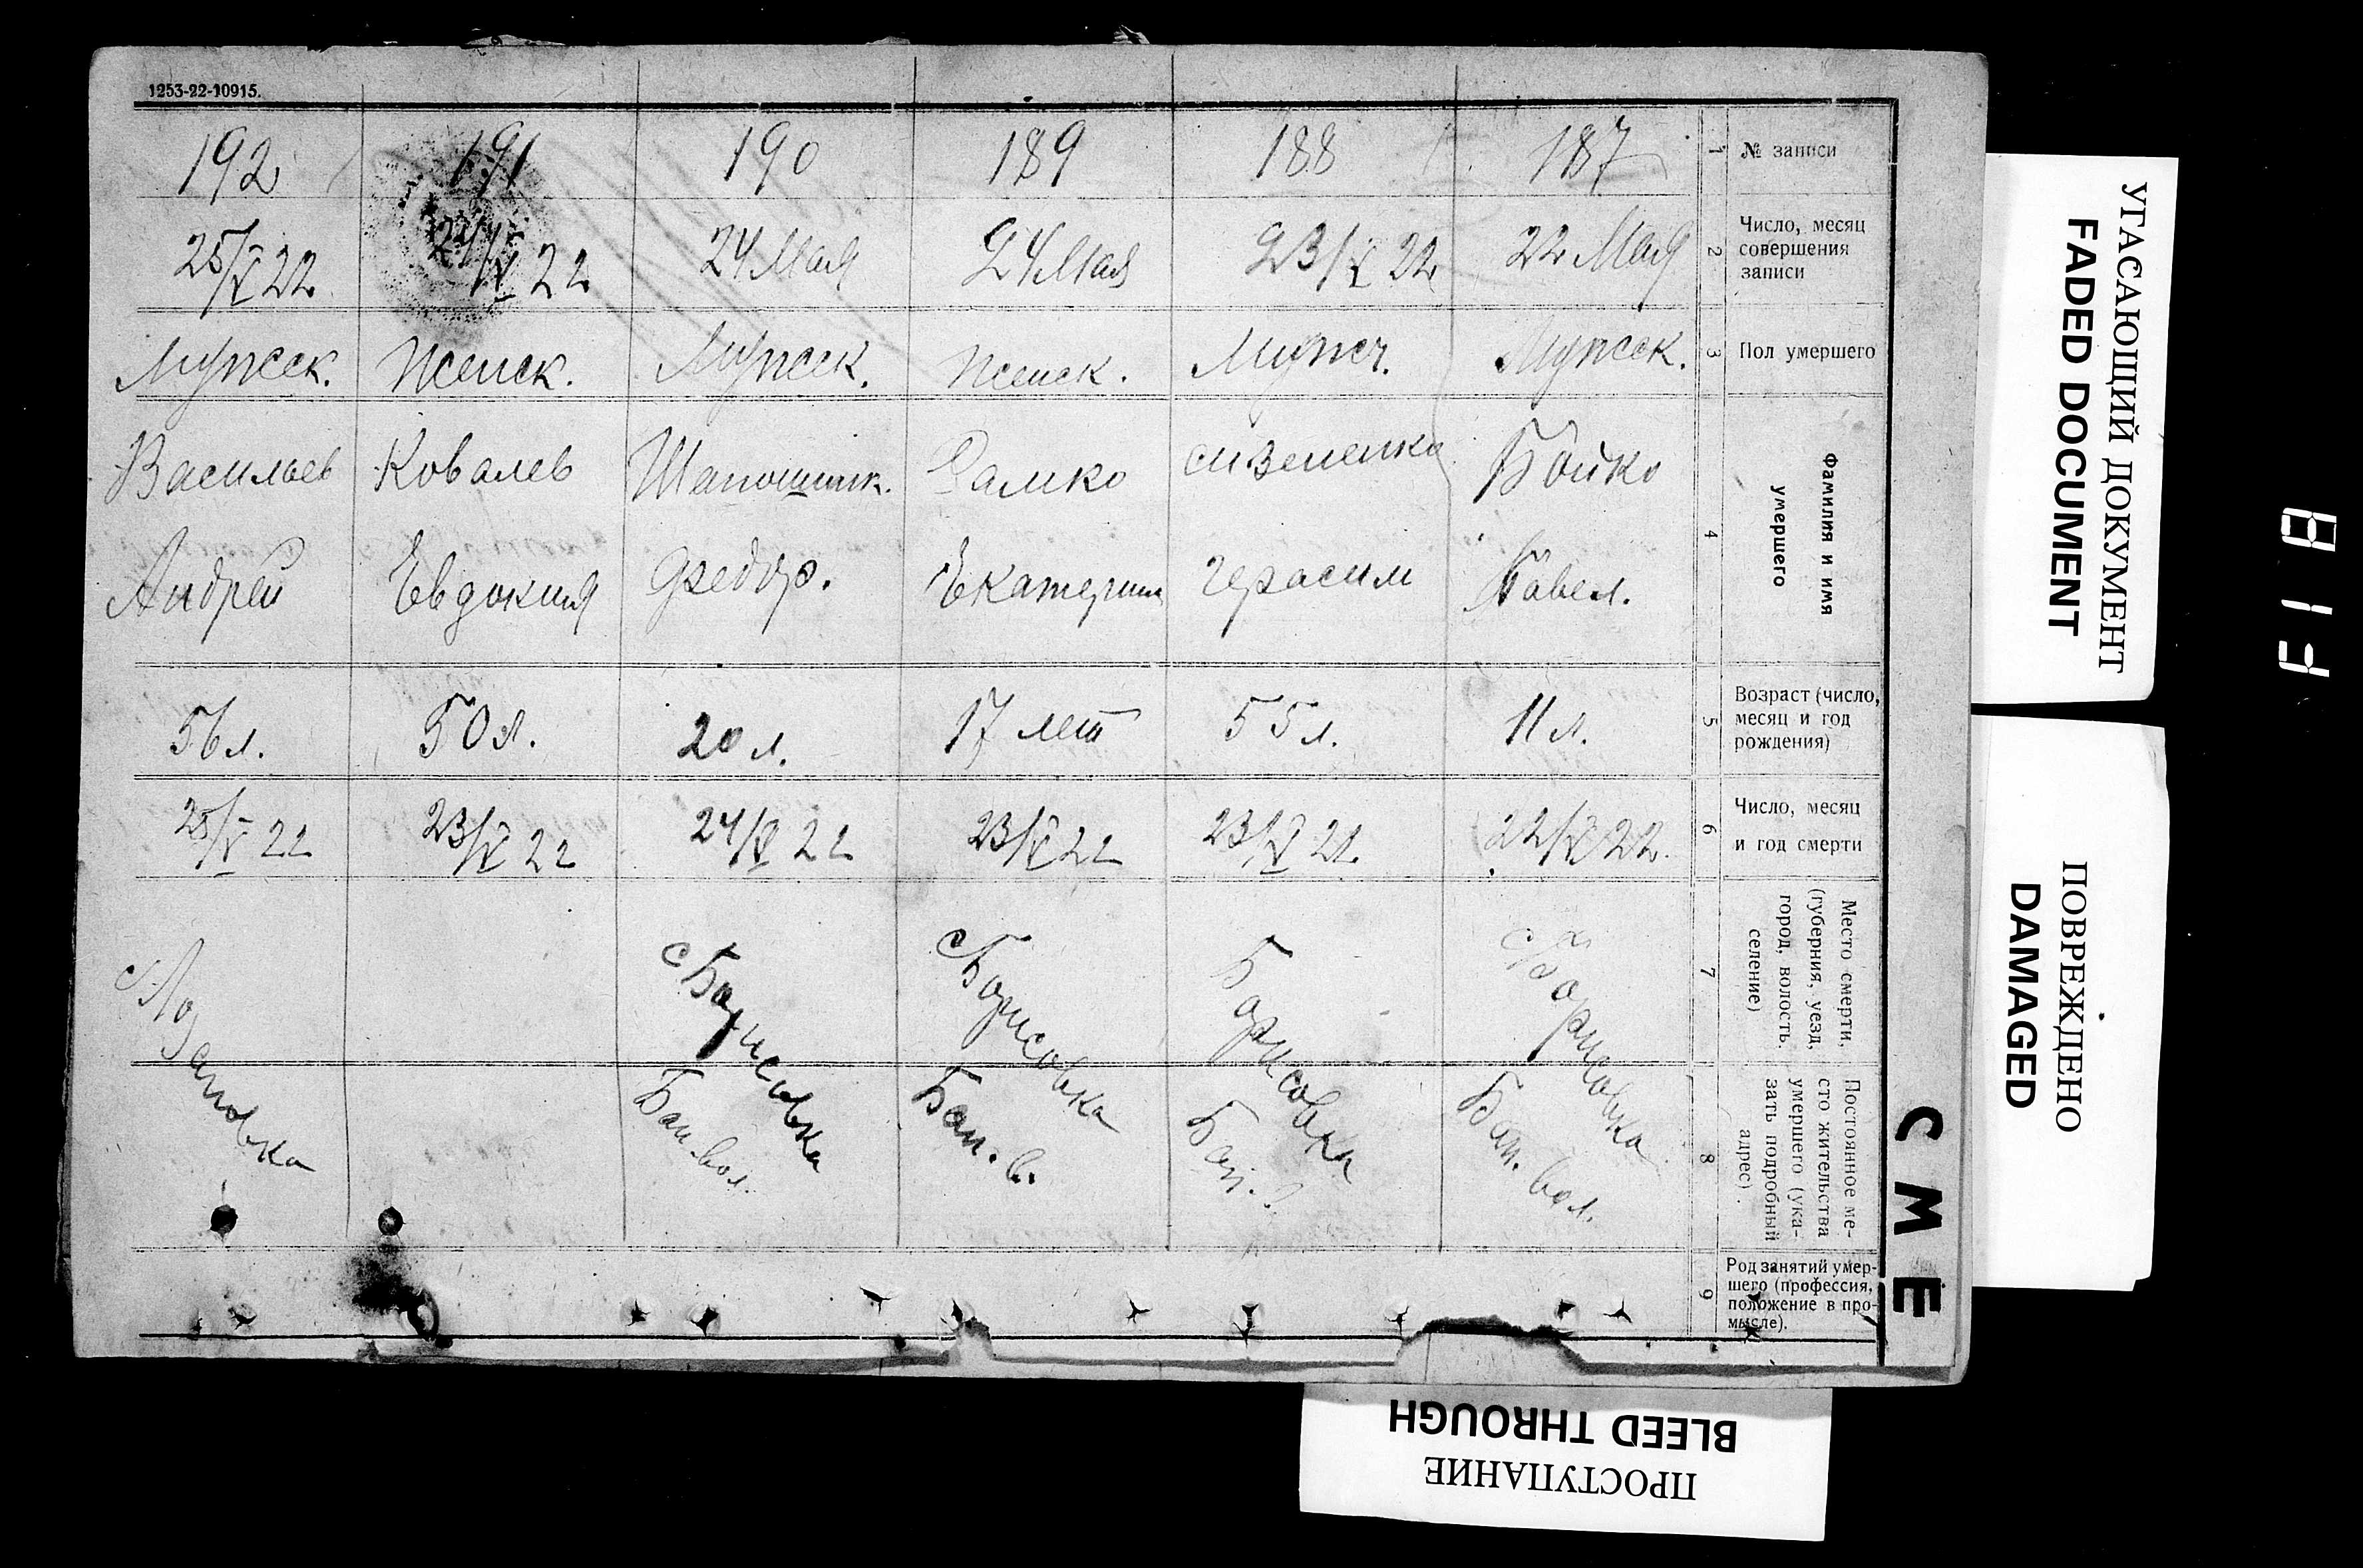 1253-22-10915.
192
191
190
189
188
187
1
№ записи
25/V 22
24/V 22
24 Мая
24 Мая
23/V 22
22 Мая
2
Число, месяц
совершения
записи
Мужск.
Женск.
Мужск.
Женск.
Мужск.
Мужск.
3
Пол умершего
Васильев
Ковалев
Шапошник.
Бойко
Андрей
Евдокия
Федор.
Екатерина
Герасим
Павел.
4
Фамилия и имя
умершего
56 л.
50 л.
20 л.
17 лет
55 л.
11 л.
5
Возраст (число,
месяц и год
рождения)
25/V 22
23/V 22
24/V 22
23/V 22
23/V 22.
22/V 22.
6
Число, месяц
и год смерти
с Борисовка
Бан. вол.
с Борисовка
Бан. в.
Борисовка
Бан. в
с Борисовка
Бан. вол.
7
Место смерти.
(губерния, уезд,
город, волость,
селение)
8
Постоянное ме-
сто жительства
умершего (ука-
зать подробный
адрес).
9
Род занятий умер-
шего (профессия,
положение в про-
мысле).
СМЕ
УГАСАЮЩИЙ ДОКУМЕНТ
FADED DOCUMENT
ПОВРЕЖДЕНО
DAMAGED
ПРОСТУПАНИЕ
BLEED THROUGH